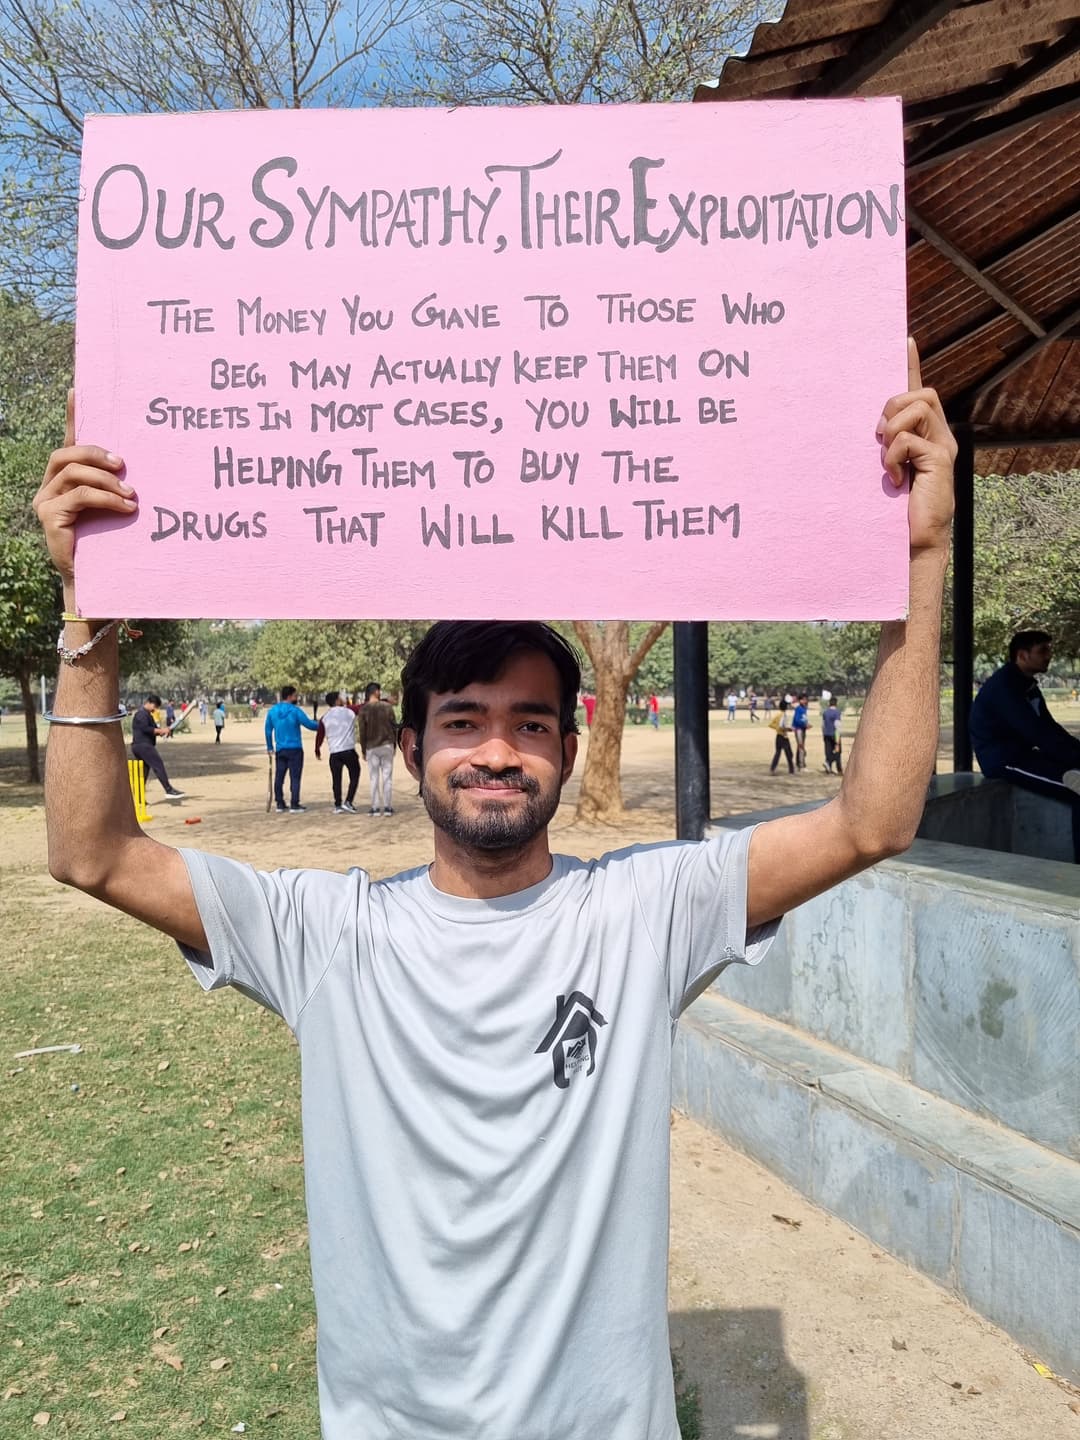 OUR SYMPATHY, THEIR EXPLOITATION
THE MONEY YOU GAVE TO THOSE WHO
BEG MAY ACTUALLY KEEP THEM ON
STREETS IN MOST CASES, YOU WILL BE
HELPING THEM TO BUY THE
DRUGS THAT WILL KILL THEM